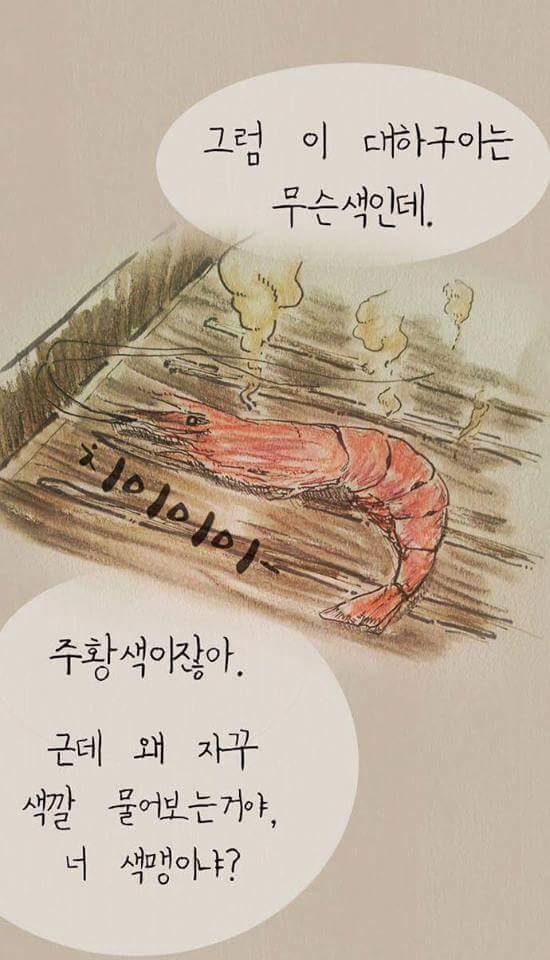 그럼 이 대하구이는
무슨색인데.
치이이이이-
주황색이잖아.
근데 왜 자꾸
색깔 물어보는거야,
너 색맹이냐?